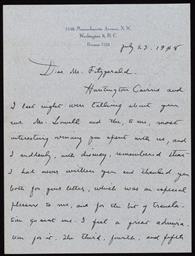 Massachusetts Avenue, N.W.
Washington 8, D.C.
July 23, 1948
Dear Mr. Fitzgerald,
Huntington Cairns and
I last night were talking about your
and Mr. Lowell and the, to me, most
interesting evening you spent with us, and
I suddenly, with dismay, remembered that
I had never written you and thanked you
both for your letter, which was an especial
pleasure to me, and for the bit of transla-
tion you sent me. I feel a great admira-
tion for it. The third, fourth, and fifth